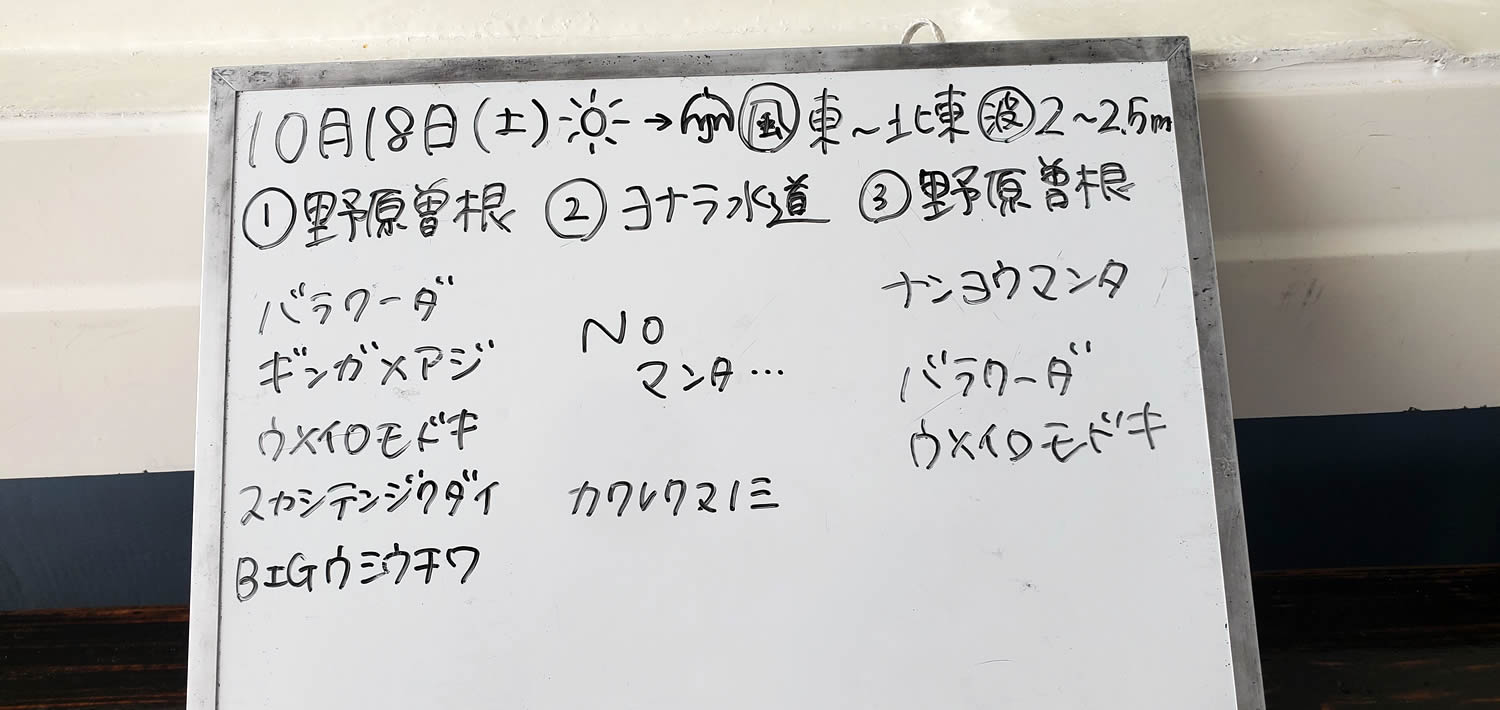 10月18日(土)☀→☂㊟風 東~北東 波 2~2.5m
①野原曽根 ②ヨナラ水道 ③野原曽根
バラクーダ
ギンガメアジ
ウメイロモドキ
スカシテンジクダイ
BIGウミウチワ
NO
マンタ…
カクレクマノミ
ナンヨウマンタ
バラクーダ
ウメイロモドキ